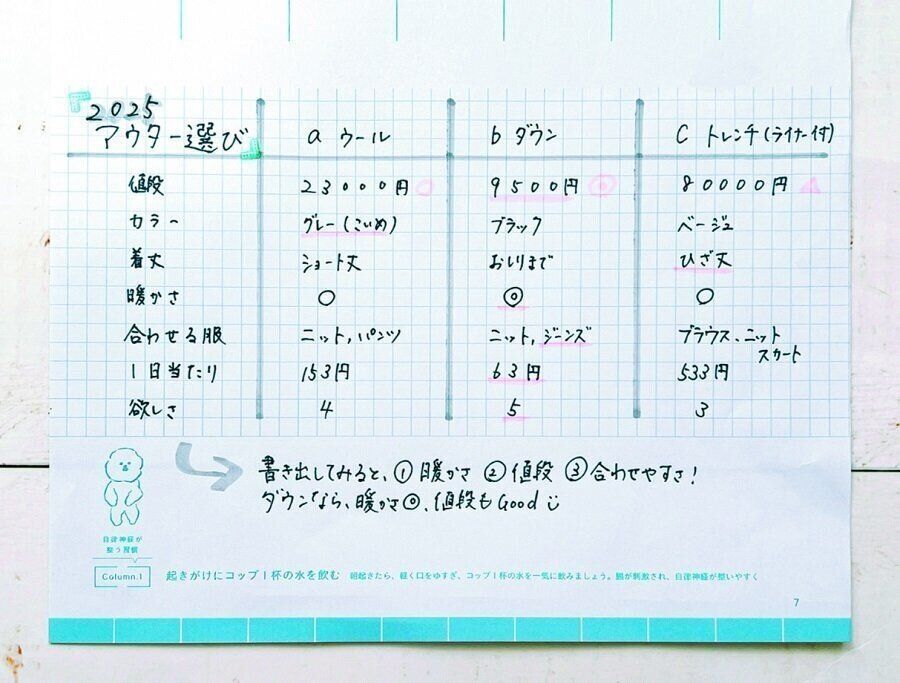 2025
アウター選び a ウール b ダウン C トレンチ(ライナー付)
値段 23000円 ○ 9500円 ◎ 80000円 △
カラー グレー(こいめ) ブラック ベージュ
着丈 ショート丈 おしりまで ひざ丈
暖かさ ○ ◎ ○
合わせる服 ニット,パンツ ニット,ジーンズ ブラウス、ニット
スカート
1日当たり 153円 63円 533円
欲しさ 4 5 3
書き出してみると、①暖かさ ②値段 ③合わせやすさ!
ダウンなら、暖かさ◎、値段もGood
自律神経が
整う習慣
Column.1 起きがけにコップ1杯の水を飲む 朝起きたら、軽く口をゆすぎ、コップ1杯の水を一気に飲みましょう。腸が刺激され、自律神経が整いやすく
7